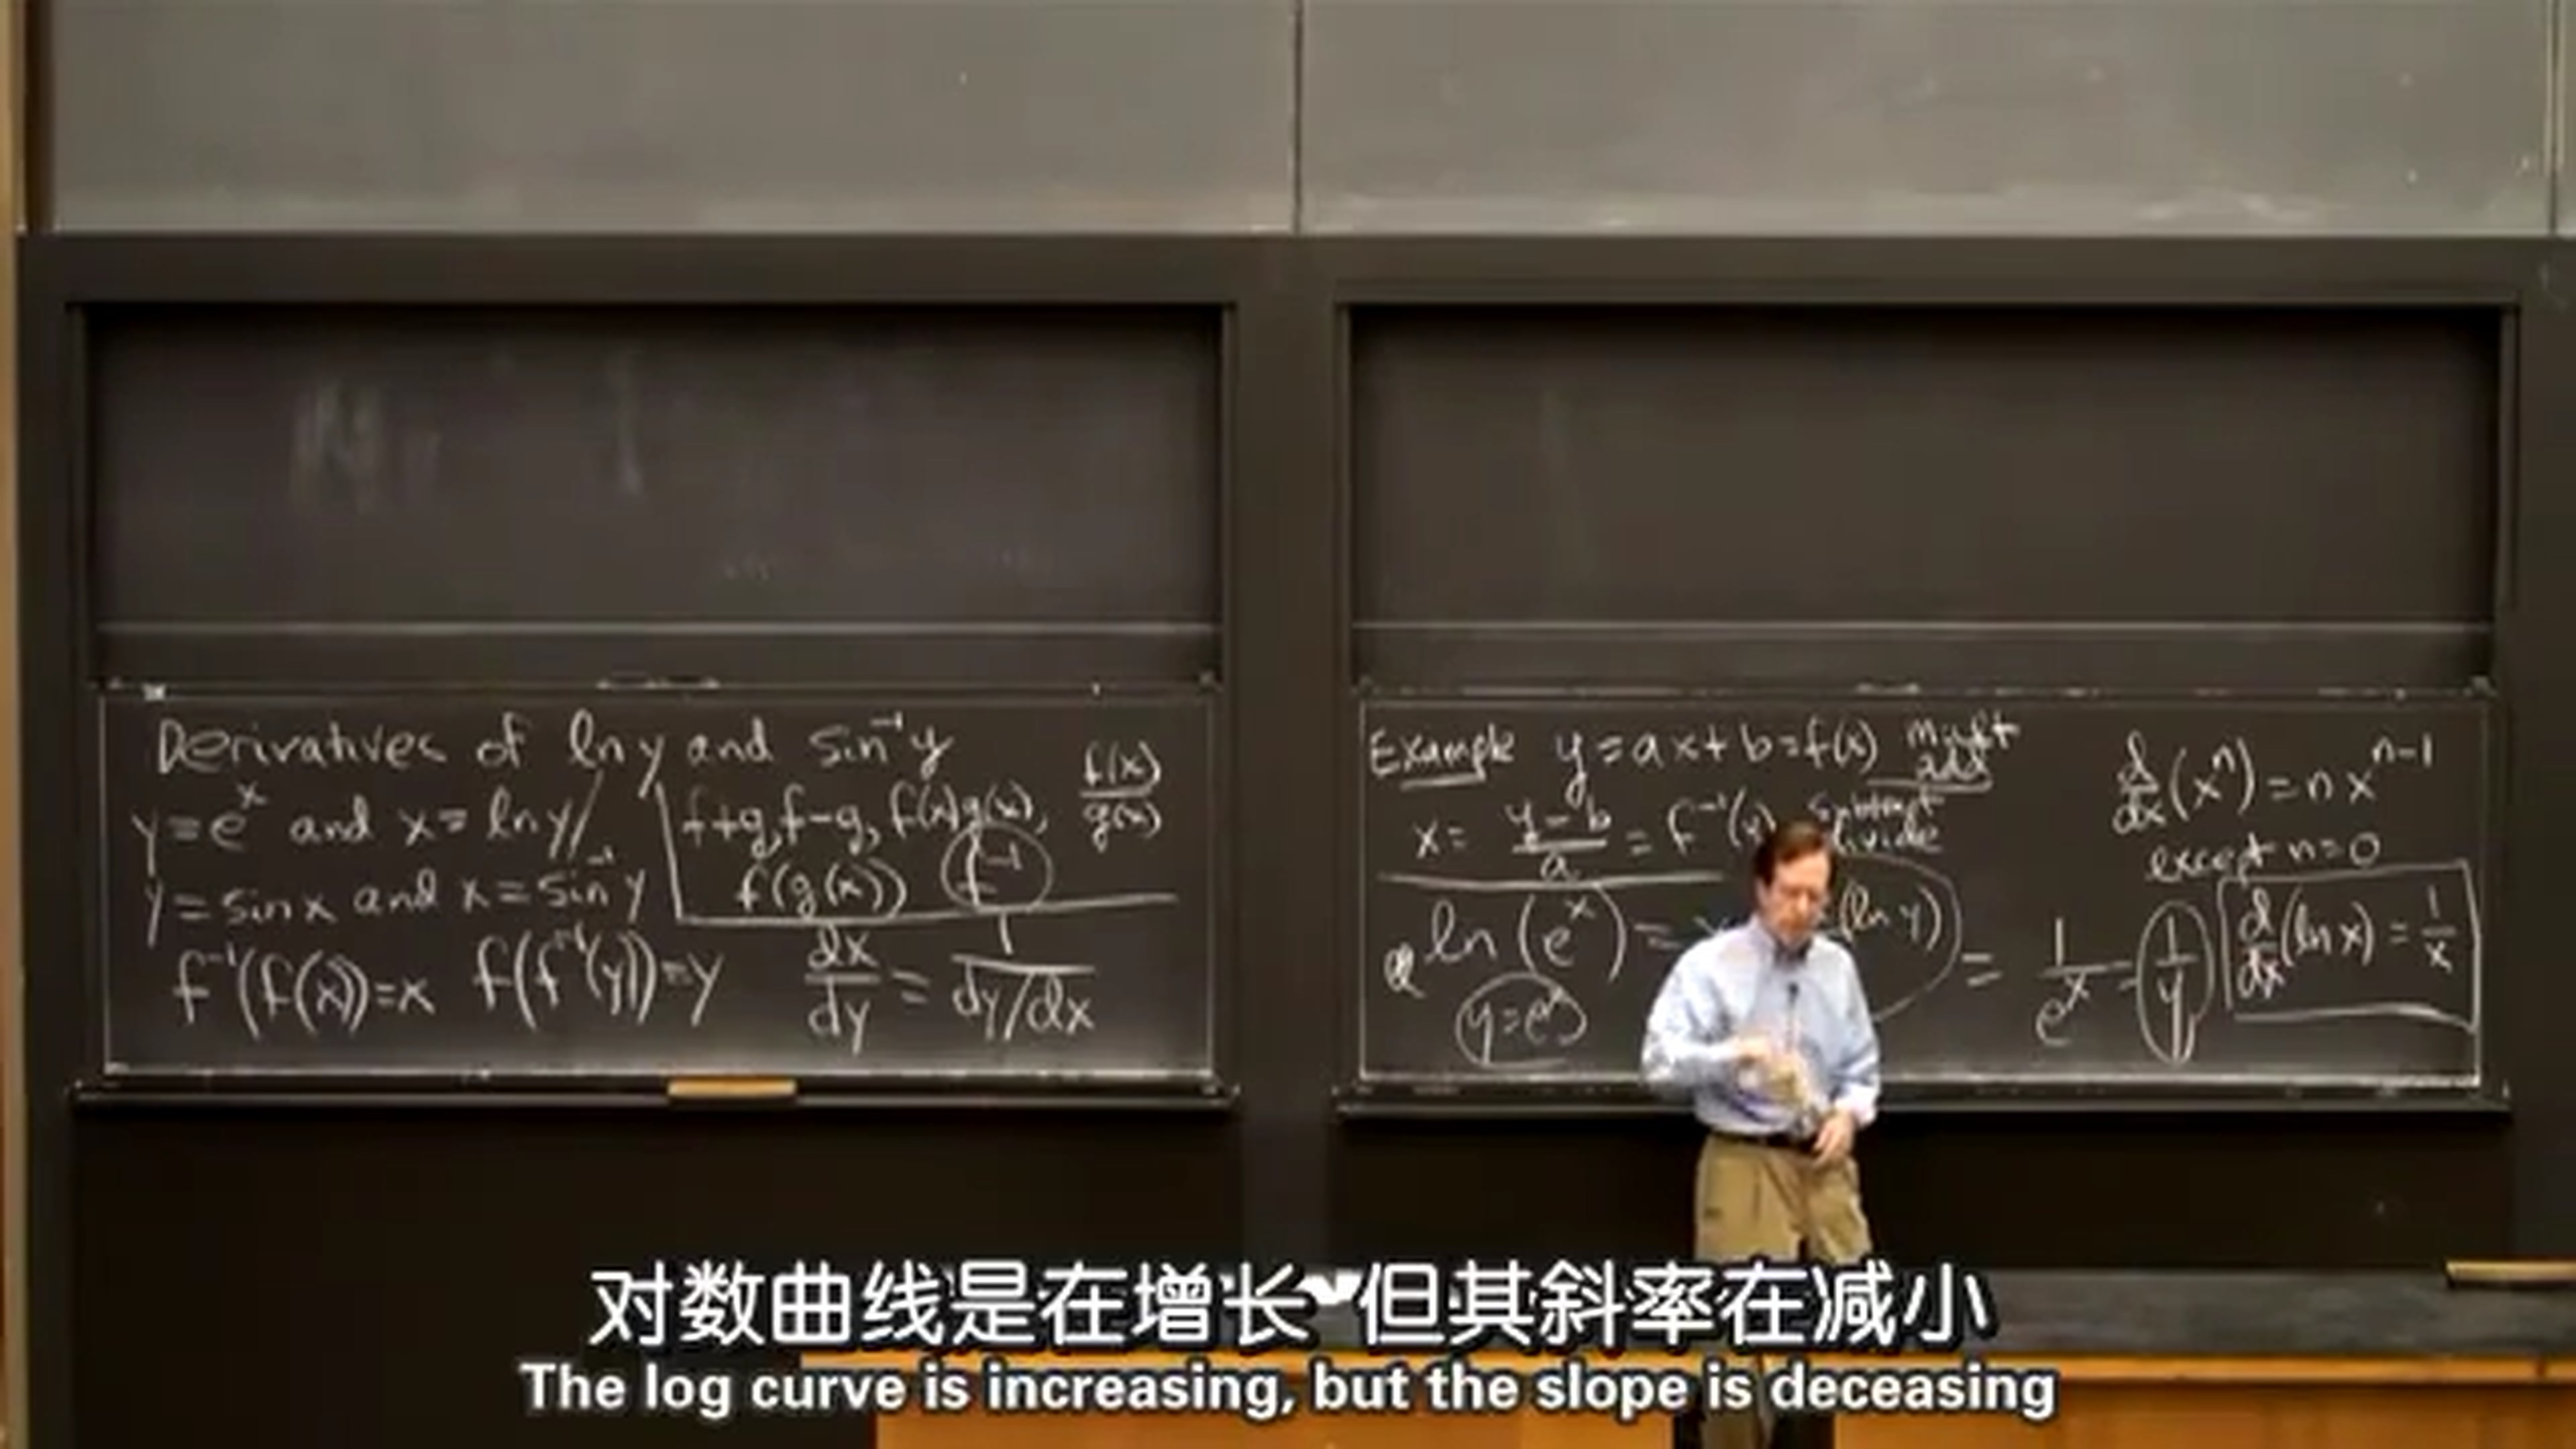 Derivatives of ln y and sin⁻¹y
y = eˣ and x = ln y
y = sin x and x = sin⁻¹ y
f+g, f−g, f(x)g(x), f(x)/g(x)
f(g(x)) f⁻¹
f⁻¹(f(x)) = x f(f⁻¹(y)) = y dx/dy = 1/(dy/dx)
Example y = ax + b = f(x) mult add
x = (y − b)/a = f⁻¹( subtract divide
ln(eˣ) = (ln y) = 1/eˣ = 1/y
y = eˣ
d/dx (xⁿ) = n xⁿ⁻¹
except n=0
d/dx (ln x) = 1/x
对数曲线是在增长 但其斜率在减小
The log curve is increasing, but the slope is deceasing